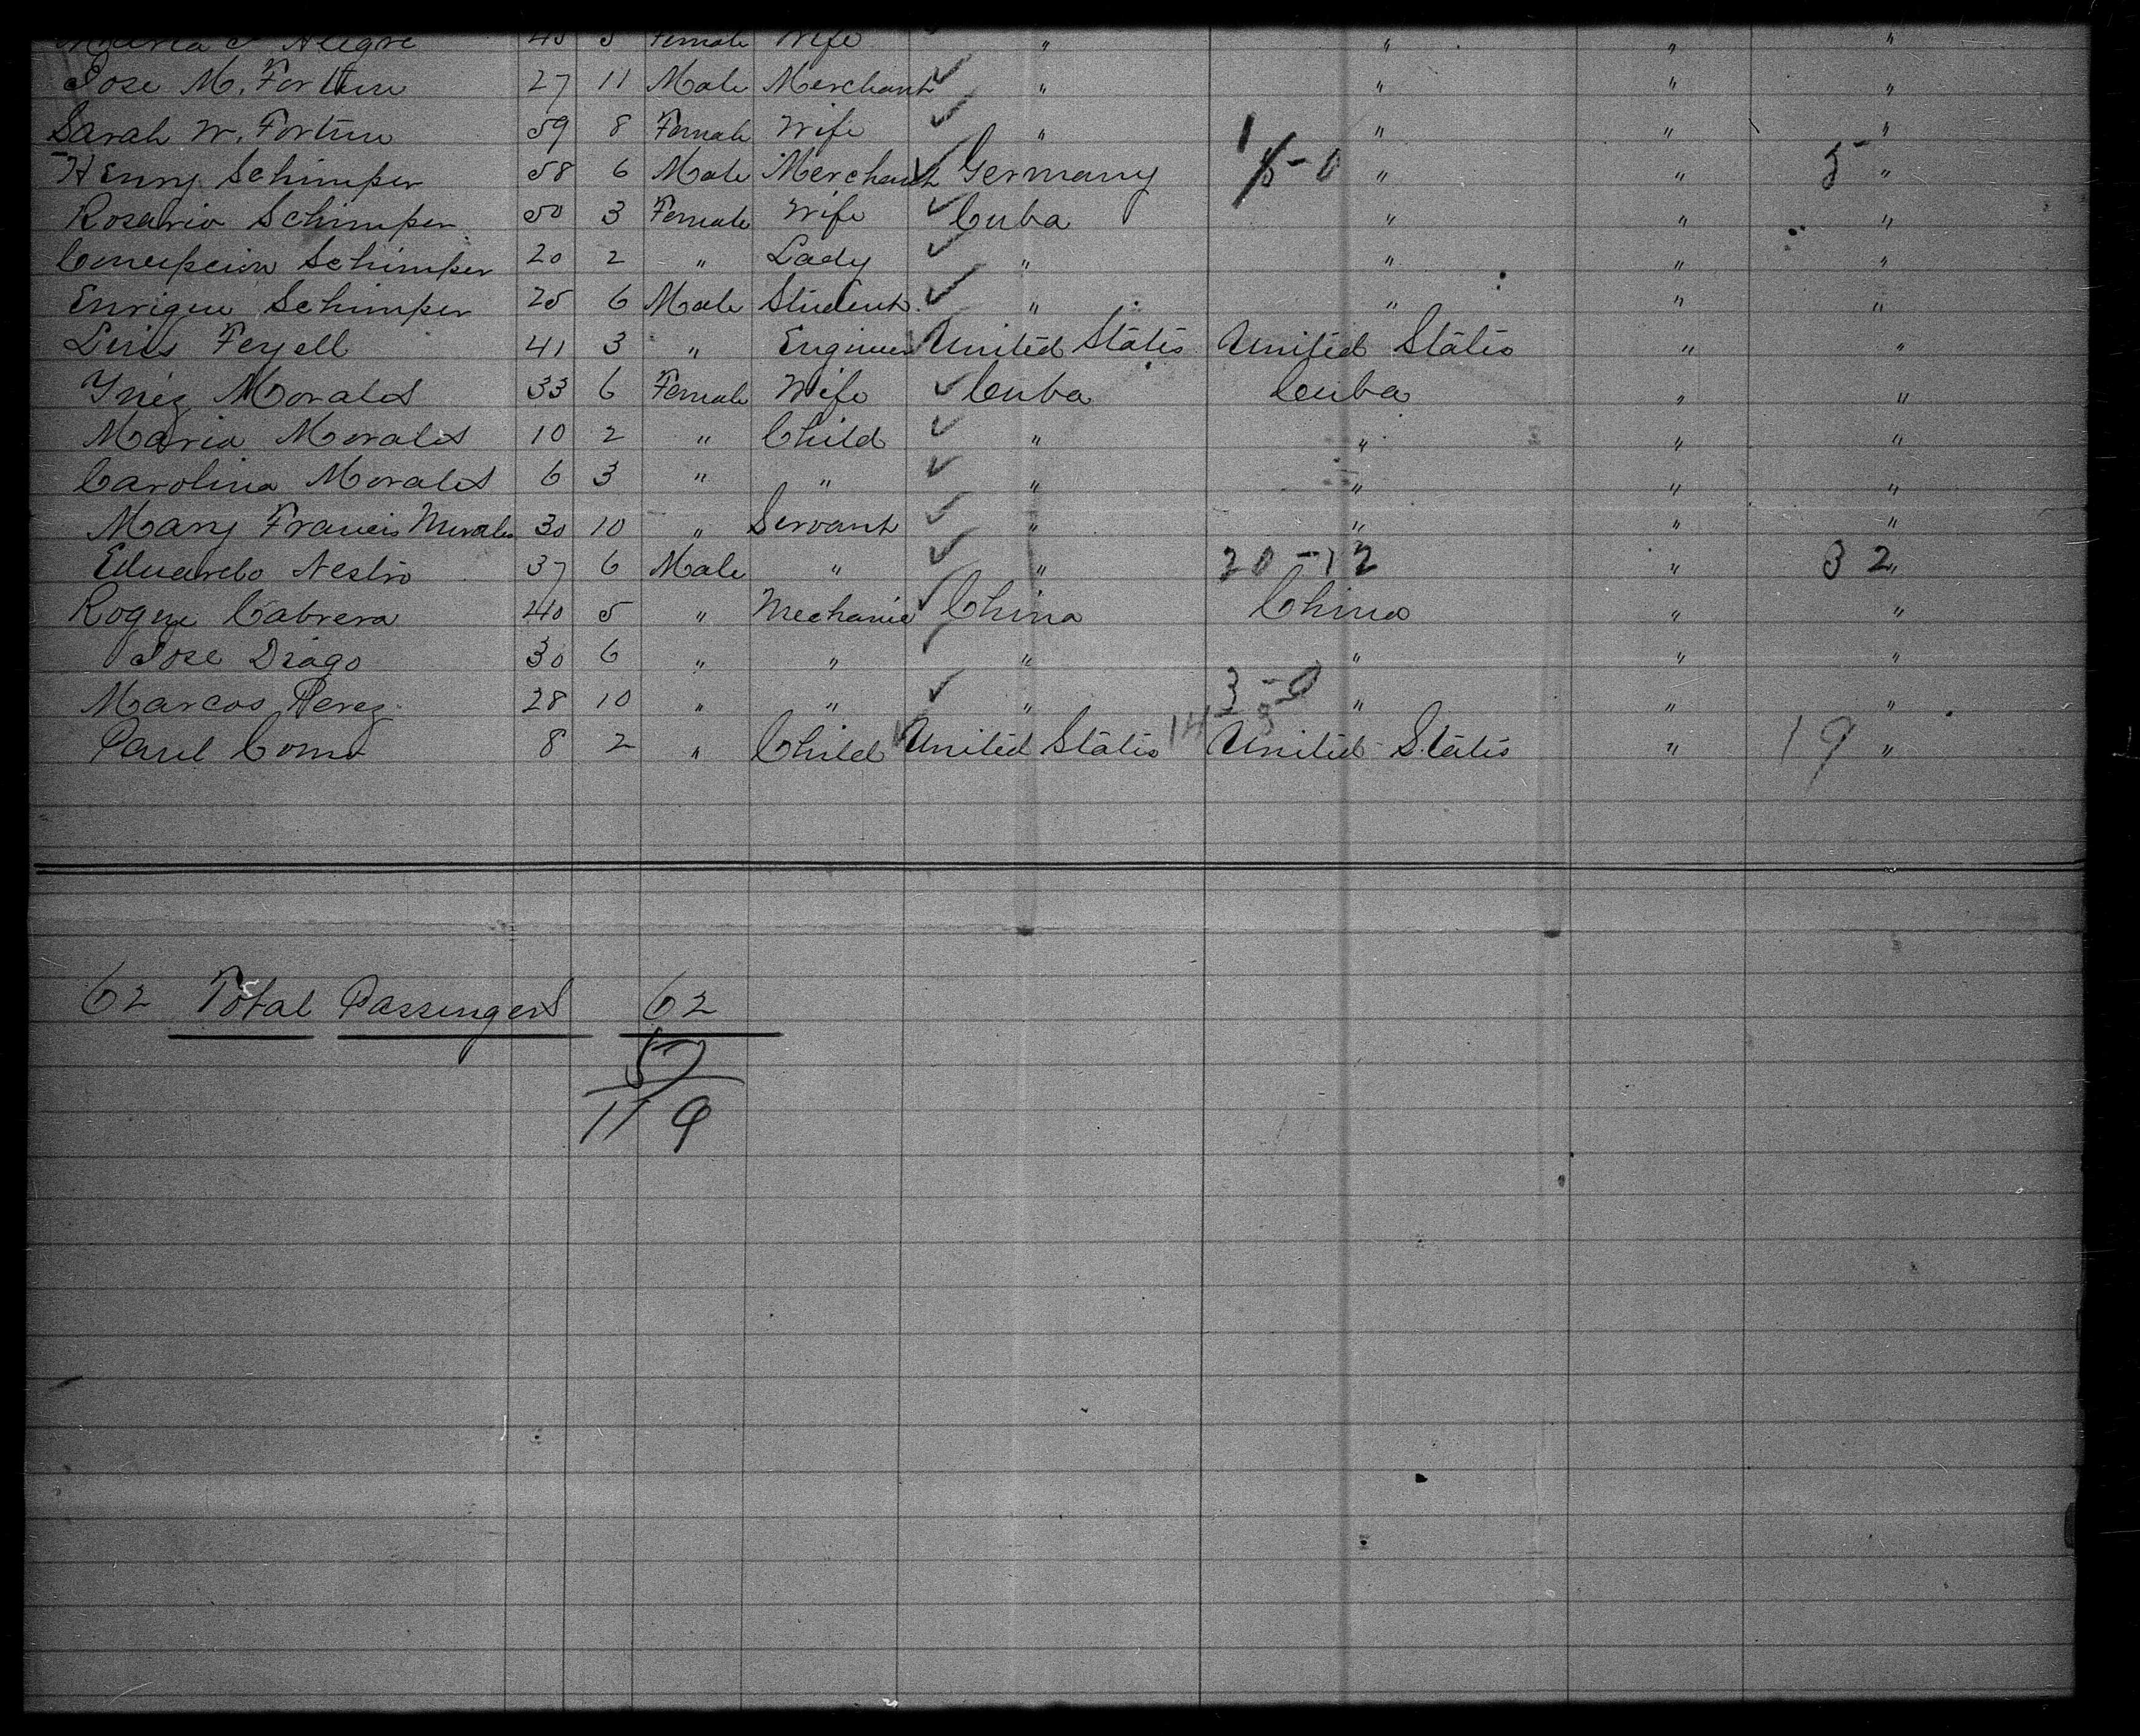 Maria C Alegre 45 5 Female Wife " " " "
Jose M. Fortun 27 11 Male Merchant ✓ " " " "
Sarah W. Fortun 59 8 Female Wife ✓ " " " "
Henry Schimper 58 6 Male Merchant ✓ Germany 1/5-0 " " 5 "
Rosario Schimper 50 3 Female Wife ✓ Cuba " " "
Concepcion Schimper 20 2 " Lady ✓ " " " "
Enrique Schimper 25 6 Male Student ✓ " " " "
Luis Feyell 41 3 " Engineer United States United States " "
Ynez Morales 33 6 Female Wife ✓ Cuba Cuba " "
Maria Morales 10 2 " Child ✓ " " " "
Carolina Morales 6 3 " " ✓ " " " "
Mary Francis Morales 30 10 " Servant ✓ " " " "
Eduardo Nestro 37 6 Male " ✓ " 20-12 " 32 "
Roque Cabrera 40 5 " Mechanic ✓ China China " "
Jose Drago 30 6 " " ✓ " " " "
Marcos Perez 28 10 " " ✓ " 3-0 " " "
14-5
Paul Como 8 2 " Child ✓ United States United States " 19 "
62 Total Passengers 62
57
119